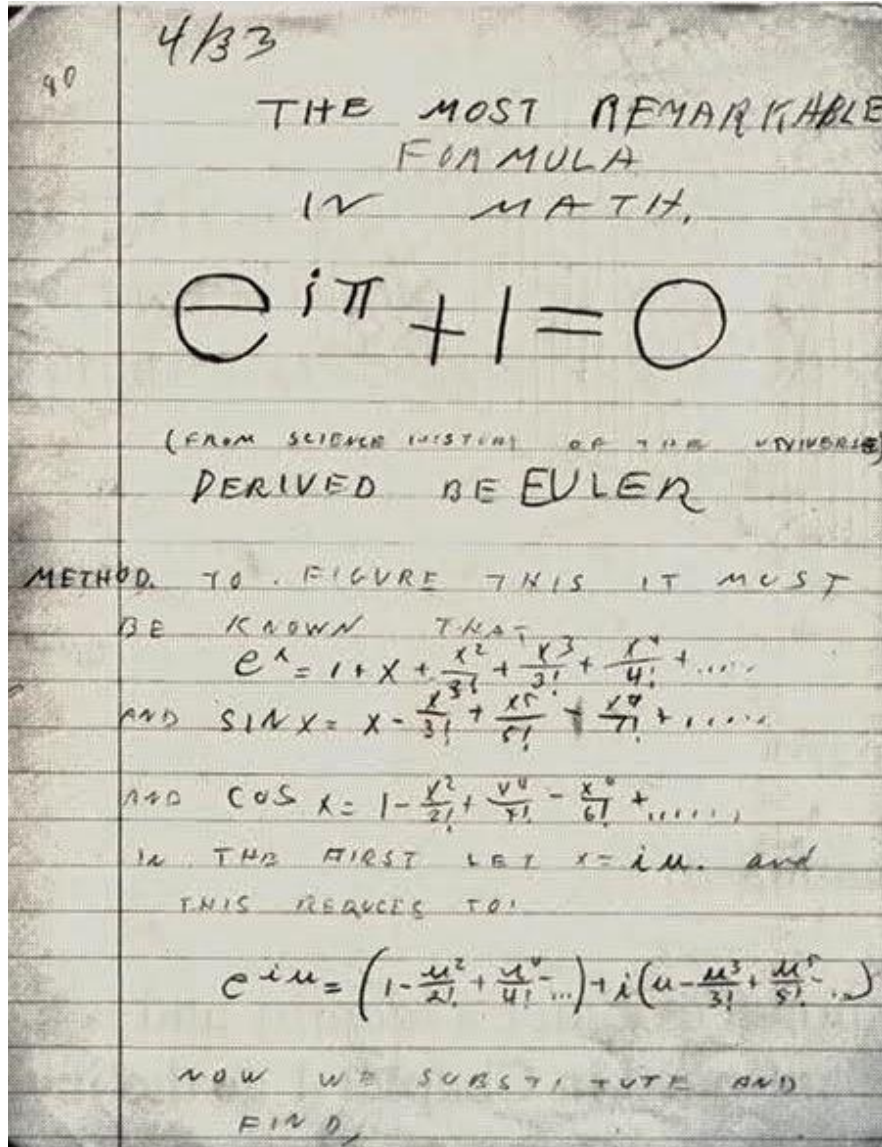 4/33
90
THE MOST REMARKABLE
FORMULA
IN MATH.
e^{iπ} + 1 = 0
(FROM SCIENCE HISTORY OF THE UNIVERSE)
DERIVED BE EULER
METHOD. TO FIGURE THIS IT MUST
BE KNOWN THAT
e^x = 1 + x + x^2/2! + x^3/3! + x^4/4! + .....
AND SIN x = x - x^3/3! + x^5/5! - x^7/7! + .....
AND COS x = 1 - x^2/2! + x^4/4! - x^6/6! + ......
IN THE FIRST LET x = iu. and
THIS REDUCES TO:
e^{iu} = (1 - u^2/2! + u^4/4! - ...) + i(u - u^3/3! + u^5/5! - ...)
NOW WE SUBSTITUTE AND
FIND,